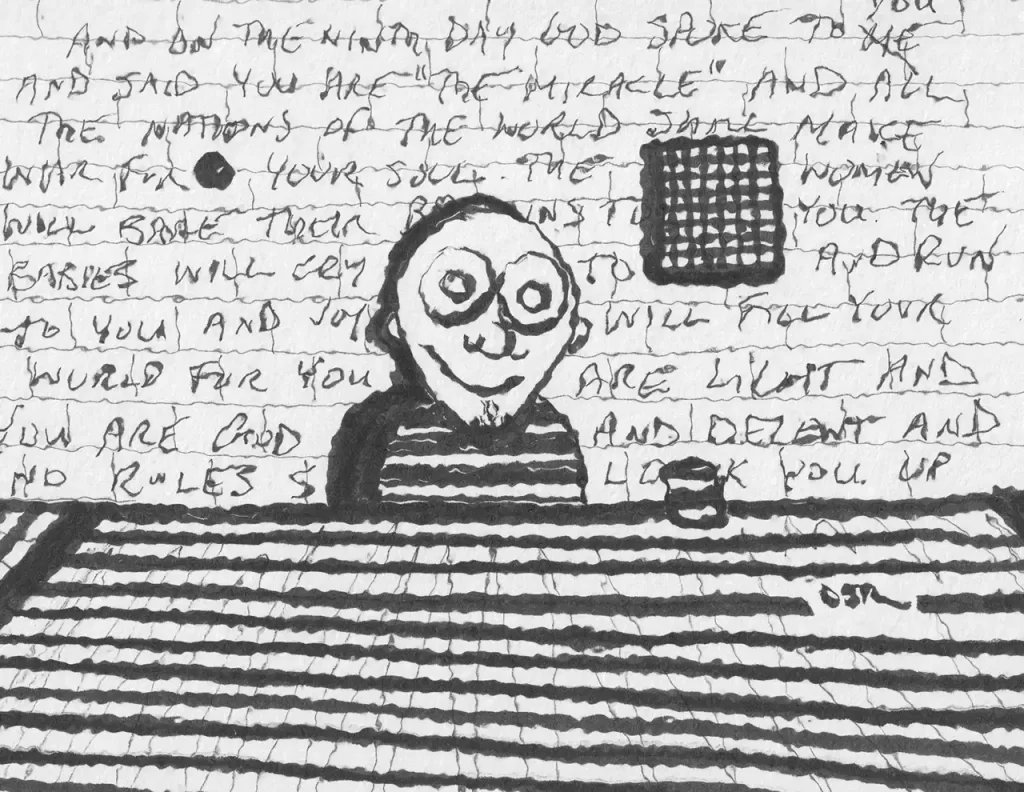 YOU
AND ON THE NINTH DAY GOD SPOKE TO ME
AND SAID YOU ARE "THE MIRACLE" AND ALL
THE NATIONS OF THE WORLD SHALL MAKE
WAR FOR YOUR SOUL. THE WOMEN
WILL BARE THEIR TO YOU. THE
BABIES WILL CRY TO AND RUN
TO YOU AND JOY WILL FILL YOUR
WORLD FOR YOU ARE LIGHT AND
YOU ARE GOOD AND DEZENT AND
NO RULES LOCK YOU UP
DSR